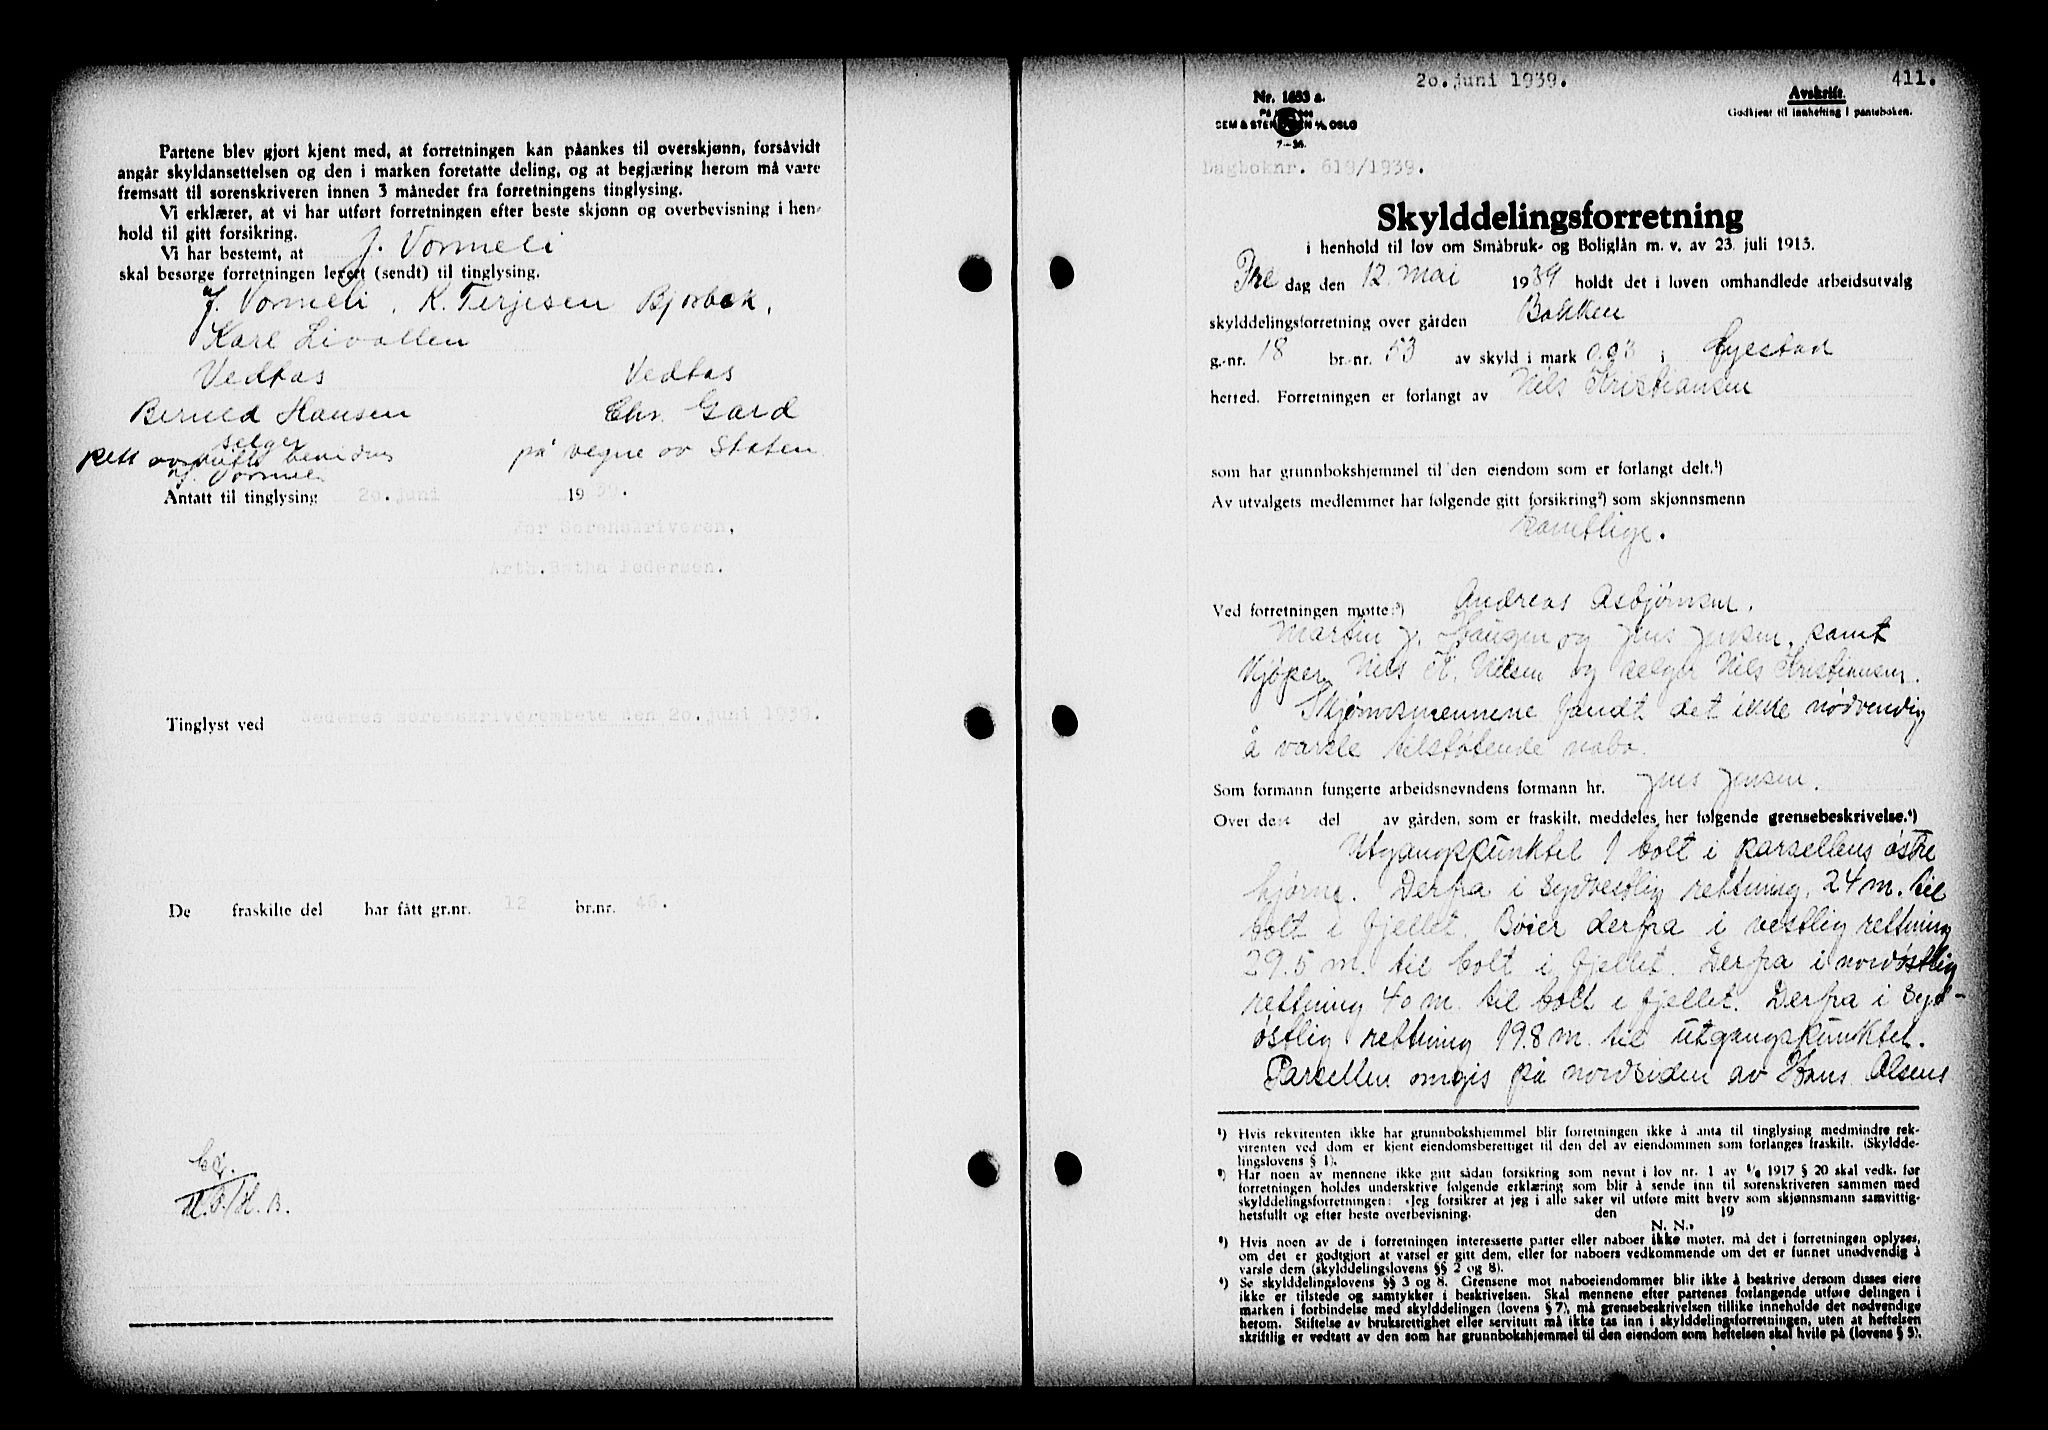 Partene blev gjort kjent med, at forretningen kan påankes til overskjønn, forsåvidt
angår skyldansettelsen og den i marken foretatte deling, og at begjæring herom må være
fremsatt til sorenskriveren innen 3 måneder fra forretningens tinglysing.
Vi erklærer, at vi har utført forretningen efter beste skjønn og overbevisning i hen-
hold til gitt forsikring.
Vi har bestemt, at J. Vormeli
skal besørge forretningen levert (sendt) til tinglysing.
J. Vormeli, K. Terjesen Bjorbek,
Karl Livollen
Vedtas Vedtas
Berned Hansen Chr. Gard
selger på vegne av Staten
Rett
J. Vormeli
Antatt til tinglysing 20. juni 1939.
For Sorenskriveren,
Arth. Betha Pedersen.
Tinglyst ved Nedenes sorenskriverembete den 20. juni 1939.
De fraskilte del har fått gr.nr. 12 br.nr. 46.
H.B.
20. juni 1939. 411.
Nr. 1633 a. Avskrift.
Godkjent til innhefting i panteboken.
SEM & STENERSEN A/S OSLO
7-36
Dagboknr. 619/1939.
Skylddelingsforretning
i henhold til lov om Småbruk- og Boliglån m. v. av 23. juli 1915.
Fredag den 12. mai 1939 holdt det i loven omhandlede arbeidsutvalg
skylddelingsforretning over gården Bakken
g.-nr. 18 br.-nr. 53 av skyld i mark 0.03 i Øyestad
herred. Forretningen er forlangt av Nils Kristiansen
som har grunnbokshjemmel til den eiendom som er forlangt delt.¹)
Av utvalgets medlemmer har følgende gitt forsikring²) som skjønnsmenn
samtlige.
Ved forretningen møtte:³) Andreas Asbjørnsen,
Martin J. Haugen og Jens Jensen, samt
kjøper Nils K. Nilsen og selger Nils Kristiansen.
Skjønnsmennene fandt det ikke nødvendig
å varsle tilstøtende nabo.
Som formann fungerte arbeidsnevndens formann hr. Jens Jensen.
Over den del av gården, som er fraskilt, meddeles her følgende grensebeskrivelse.⁴)
Utgangspunktet 1 bolt i parsellens østre
hjørne. Derfra i sydvestlig rettning, 24 m. til
bolt i fjellet. Bøier derfra i vestlig rettning
29.5 m. til bolt i fjellet. Derfra i nordøstlig
rettning 40 m. til bolt i fjellet. Derfra i syd-
østlig rettning 19.8 m. til utgangspunktet.
Parsellen omgis på nordsiden av Hans Olsens
¹) Hvis rekvirenten ikke har grunnbokshjemmel blir forretningen ikke å anta til tinglysing medmindre rek-
virenten ved dom er kjent eiendomsberettiget til den del av eiendommen som forlanges fraskilt. (Skyldde-
lingslovens § 1).
²) Har noen av mennene ikke gitt sådan forsikring som nevnt i lov nr. 1 av 1/6 1917 § 20 skal vedk. før
forretningen holdes underskrive følgende erklæring som blir å sende inn til sorenskriveren sammen med
skylddelingsforretningen: «Jeg forsikrer at jeg i alle saker vil utføre mitt hverv som skjønnsmann samvittig-
hetsfullt og efter beste overbevisning. den 19
N. N.»
³) Hvis noen av de i forretningen interesserte parter eller naboer ikke møter, må det i forretningen oplyses,
om det er godtgjort at varsel er gitt dem, eller for naboers vedkommende om det er funnet unødvendig å
varsle dem (skylddelingslovens §§ 2 og 8).
⁴) Se skylddelingslovens §§ 3 og 8. Grensene mot naboeiendommer blir ikke å beskrive dersom disses eiere
ikke er tilstede og samtykker i beskrivelsen. Skal mennene efter partenes forlangende utføre delingen i
marken i forbindelse med skylddelingen (lovens § 7), må grensebeskrivelsen tillike inneholde det nødvendige
herom. Stiftelse av bruksrettighet eller servitutt må ikke tas inn i skylddelingsforretningen, uten at heftelsen
skriftlig er vedtatt av den som har grunnbokshjemmel til den eiendom som heftelsen skal hvile på (lovens § 5).